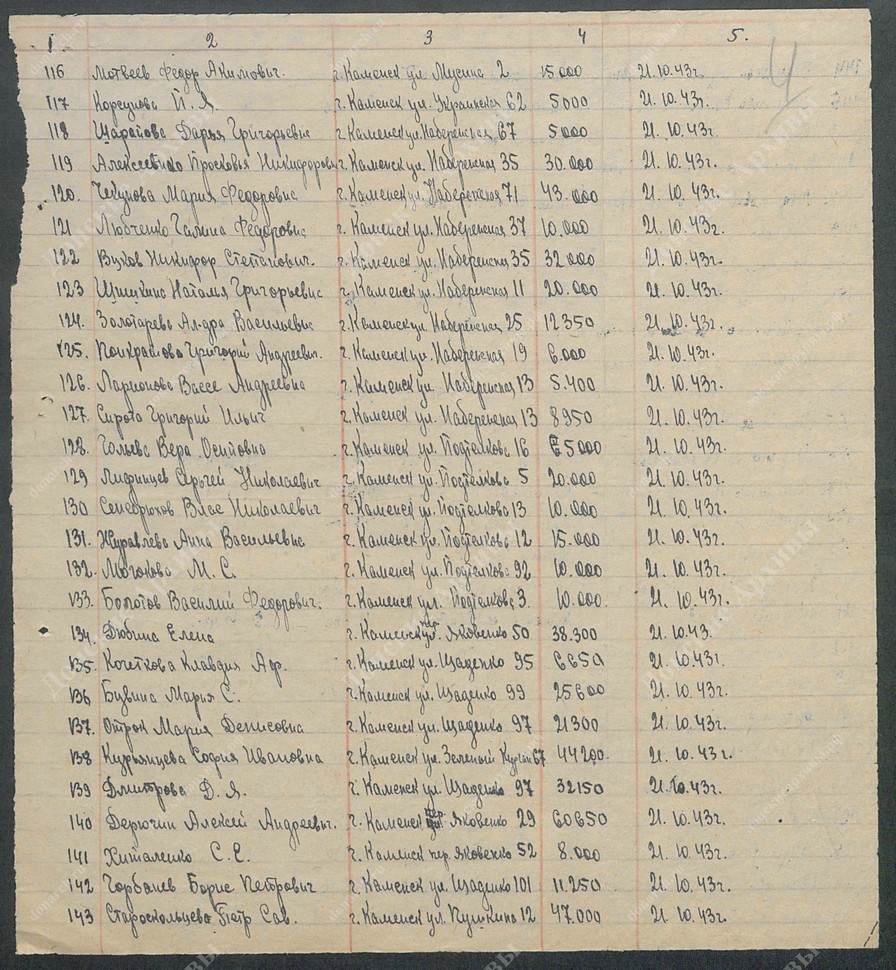 1 2 3 4 5.
116 Матвеев Федор Акимович. г. Каменск ул. Мусина 2 15.000 21.10.43г.
117 Корсунова П. Я. г. Каменск ул. Украинская 62 5000 21.10.43г.
118 Шарапова Дарья Григорьевна г. Каменск ул. Набережная 67 5000 21.10.43г.
119 Прасковья Никифоровн г. Каменск ул. Набережная 35 30.000 21.10.43г.
120. Чекунова Мария Федоровна г. Каменск ул. Набережная 71 43.000 21.10.43г.
121 Любченко Галина Федоровна г. Каменск ул. Набережная 37 10.000 21.10.43г.
122 Никифор Степанович. г. Каменск ул. Набережная 35 32000 21.10.43г.
123 Шишкина Наталья Григорьевна г. Каменск ул. Набережная 11 20.000 21.10.43г.
124. Золотарева Ал-дра Васильевна г. Каменск ул. Набережная 25 12350 21.10.43г.
125. Панкратова Григорий Андреевич. г. Каменск ул. Набережная 19 6.000 21.10.43г.
126. Ларионова Васса Андреевна г. Каменск ул. Набережная 13 5.400 21.10.43г.
127. Сирота Григорий Ильич г. Каменск ул. Набережная 13 8950 21.10.43г.
128. Гольева Вера Осиповна г. Каменск ул. Подтелкова 16 65000 21.10.43г.
129 Сергей Николаевич г. Каменск ул. Подтелкова 5 20.000 21.10.43г.
130 Влас Николаевич г. Каменск ул. Подтелкова 13 10.000 21.10.43г.
131. Журавлева Анна Васильевна г. Каменск ул. Подтелкова 12 15.000 21.10.43г.
132. М. С. г. Каменск ул. Подтелкова 92 10.000 21.10.43г.
133. Болотов Василий Федорович. г. Каменск ул. Подтелкова 3 10.000. 21.10.43г.
134. Дюбина Елена г. Каменск пер. Яковенко 50 38.300 21.10.43.
135. Кочеткова Клавдия Аф. г. Каменск ул. Щаденко 95 6650 21.10.43г.
136 Бувина Мария С. г. Каменск ул. Щаденко 99 25600 21.10.43г.
137. Мария Денисовна г. Каменск ул. Щаденко 97 21300 21.10.43г.
138 Курьянцева София Ивановна г. Каменск ул. Зеленый Курган 67 44200. 21.10.43г.
139 Дмитрова Д. Я. г. Каменск ул. Щаденко 97 32150 21.10.43г.
140 Дерючин Алексей Андреевич. г. Каменск пер Яковенко 29 60650 21.10.43г.
141 Хиталенко С. Е. г. Каменск пер. Яковенко 52 8.000 21.10.43г.
142 Горбанев Борис Петрович г. Каменск ул. Щаденко 101 11.250 21.10.43г.
143 Старосельцева Петр Сав. г. Каменск ул. Пушкина 12 47.000 21.10.43г.